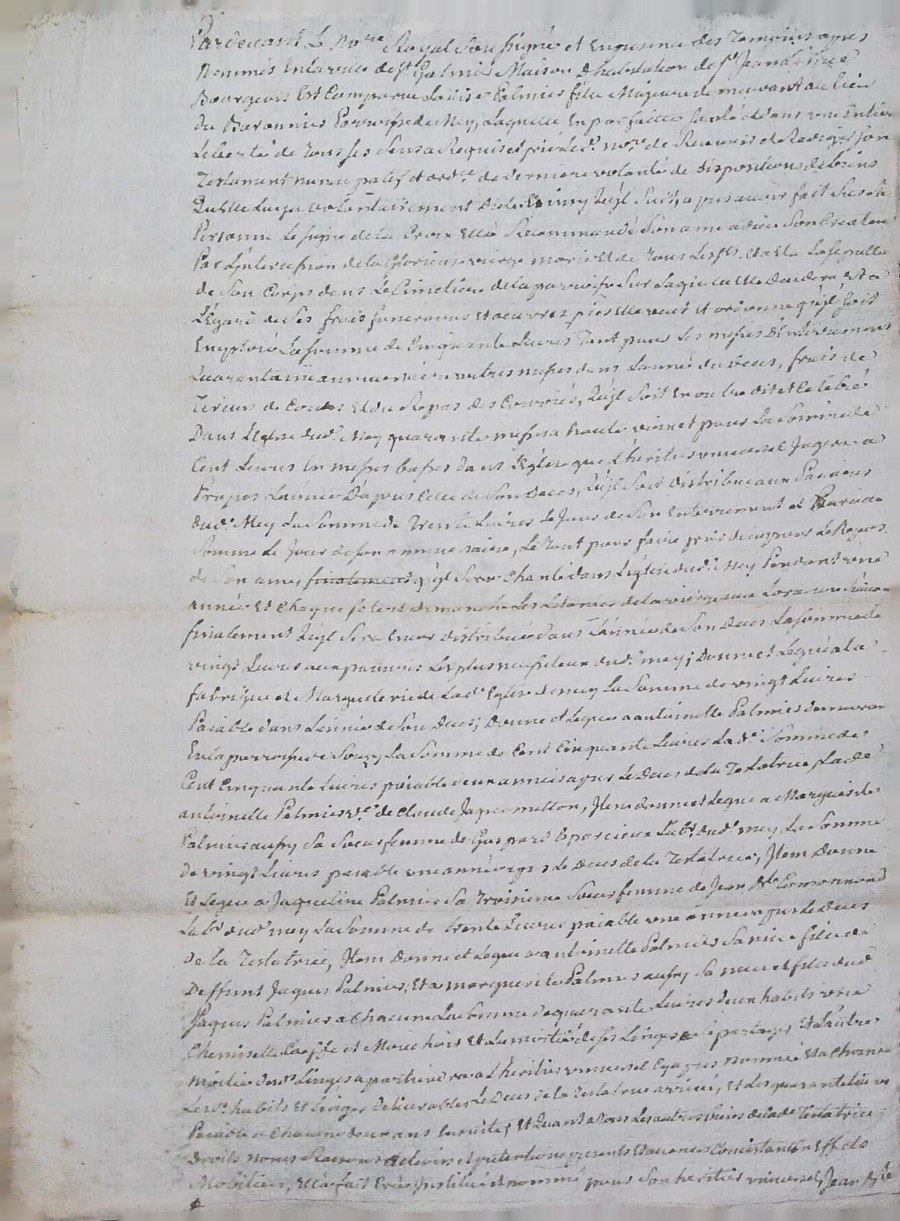 Pardevant Le no.re Royal Soussigné et En presence des Temoins apres
Nommés En la ville de s.t Galmier Maison D'habitation de s.r Jean
Bourgeois Est Comparue Loüise Palmier fille Majeure demeurant au lieu
Du Baronnier Parroisse de Mey, Laquelle En parfaitte Santé et dans une Entiere
Liberté de Tous ses sens a Requis et prié Led. no.re de Recevoir et Rediger son
Testament nuncupatif et ord.re de derniere volonté de dispositions de ses biens
Qu'elle a volontairement Dicté Et qu'jl Suit, apres avoir fait Sur sa
Personne Le signe de la Croix Elle Recommandé Son ame a dieu Son Createur
Par L'jntercession de la Glorieuse vierge marie Et de Tous Les s.ts, Elu La sepulture
de Son Corps dans Le Cimetiere de la parroisse Sur Laquelle Elle Decedera Et a
L'Egard de Ses frais funeraires Et oeuvres pies Elle veut Et ordonne qu'jl soit
Employé La somme de Cinquante Livres Tant pour Les messes D'Enterrement
Quarantaine anniversaire autres messes dans L'année du deces, frais de
Et du Repas des Convoiés, Qu'jl Soit En outre dit et Celebré
Dans L'Eglise dud. Mey quarante messes a haute voix et pour La Somme de
Cent Livres En messes basses dans L'Eglise que L'heritier universel Jugera a
Propos L'année D'apres Celle de Son Deces, Qu'jl Soit Distribué aux Pauvres
dud. Mey La Somme de Trente Livres Le Jour de Son Enterrement et Pareille
Somme Le Jour de Son anniversaire, Le Tout pour faire prier dieu pour Le Repos
de Son ame, finalement qu'jl Sera Chanté dans L'Eglise dud. Mey Pendant une
année Et Chaque feste et dimanche Les Litanies de la vierge avec L'oraison
finalement Qu'jl Sera Encore distribué dans L'année de Son Deces La somme de
vingt Livres aux pauvres Les plus necessiteux dud. mey; Donne et Legue a la
fabrique et Marguelerie de Lad. Eglise de mey La Somme de vingt Livres
Paiable dans L'année de Son Deces; Donne et Legue a antoinette Palmier demeurant
En la parroisse de La Somme de Cent Cinquante Livres Lad. Somme de
Cent Cinquante Livres paiable deux années apres Le Deces de la Testatrice, Lad.
antoinette Palmier v.e de Claude Jaquemesson, Jtem donne et Legue a Marguerite
Palmier aussy Sa Soeur femme de Gaspard Lab.r dud. mey La Somme
de vingt Livres paiable une année apres Le Deces de la Testatrice, Jtem Donne
Et Legue a Jaqueline Palmier Sa Troisieme Soeur femme de Jean
Lab.r dud. mey La Somme de trente Livres paiable une année apres Le Deces
De la Testatrice, Jtem Donne et Legue a antoinette Palmier Sa niece fille de
Deffunt Jaques Palmier, Et a marguerite Palmier aussy Sa niece et fille dud.
Jaques Palmier a Chacune La Somme de quarante Livres deux habits une
Chemisette Coeffe et Mouchoirs Et La moitié de Ses Linges a partager Et L'autre
moitié desd. Linges apartiendra a L'heritier universel Cy apres nommé
Lesd. habits Et Linges delivrables Le Deces de la Testatrice arrivé, Et Les quarante Livres
Paiable a Chacune deux ans Ensuite, Et Quant a Tous Les autres biens de lad. Testatrice
Droits noms Raisons actions et pretentions presents Et avenir Consistants En Effets
Mobiliers, Elle a fait Créé Jnstitué et nommé pour Son heritier universel, Jean